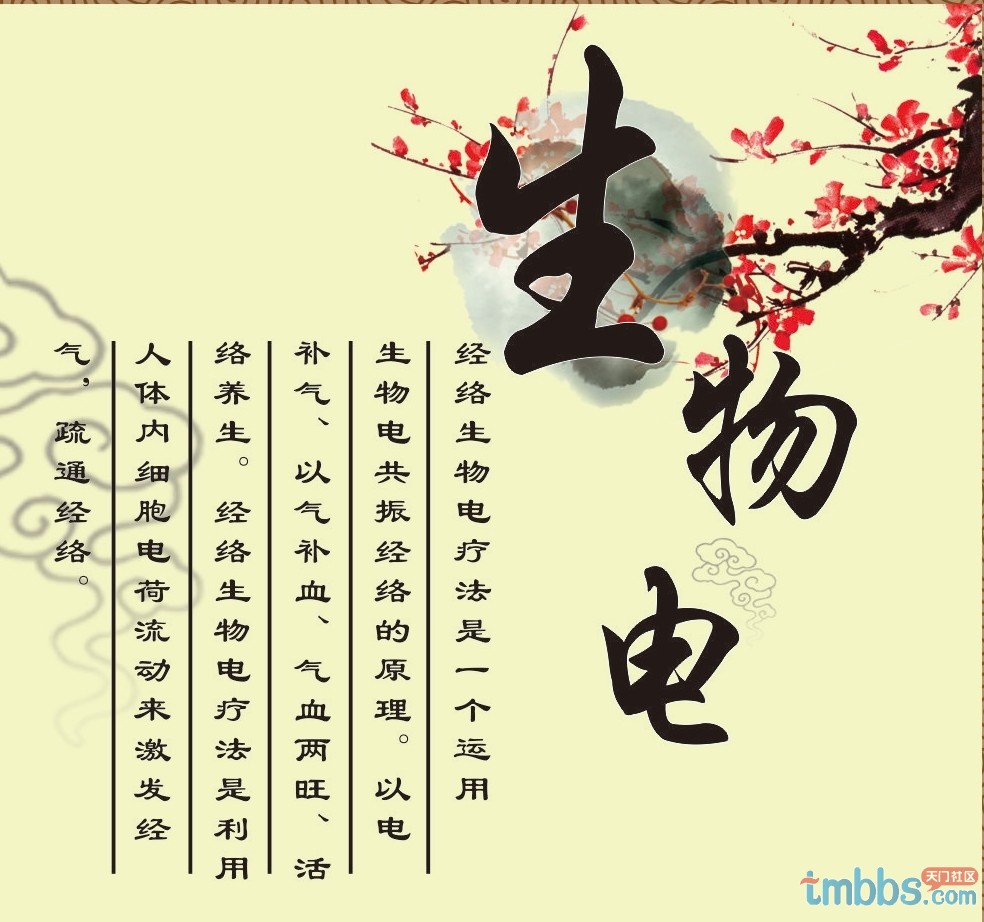 生物电
经络生物电疗法是一个运用
生物电共振经络的原理。以电
补气、以气补血、气血两旺、活
络养生。经络生物电疗法是利用
人体内细胞电荷流动来激发经
气，疏通经络。
天门社区
tmbbs.com